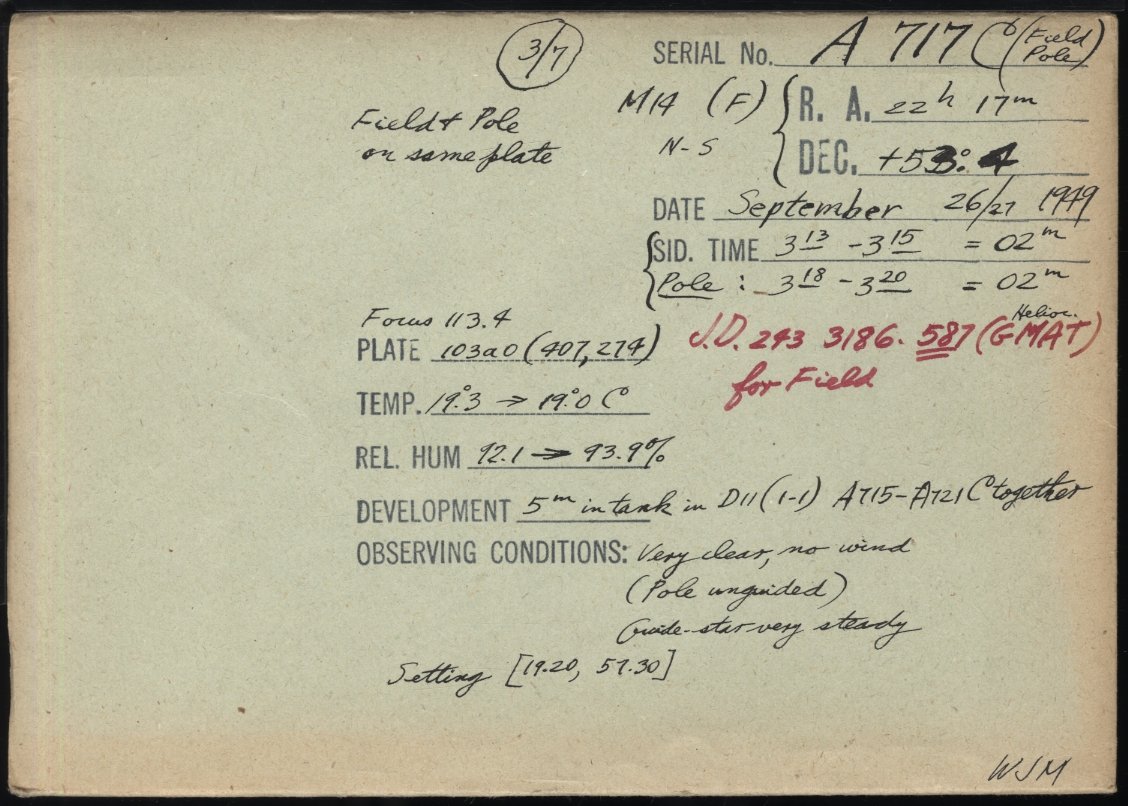 3/7
SERIAL No. A 717 C (Field
Pole)
M14 (F) R. A. 22h 17m
Field & Pole
on same plate
N-S DEC. +53°.4
DATE September 26/27 1949
SID. TIME 3 13 - 3 15 = 02m
Pole : 3 18 - 3 20 = 02m
Focus 113.4
Helioc.
J.D. 243 3186.587 (GMAT)
for Field
PLATE 103aO (407,274)
TEMP. 19°.3 → 19°.0 C
REL. HUM 92.1 → 93.9%
DEVELOPMENT 5m in tank in D11 (1-1) A715-A721 C together
OBSERVING CONDITIONS: Very clear, no wind
(Pole unguided)
Guide-star very steady
Setting [19.20, 57.30]
WJM